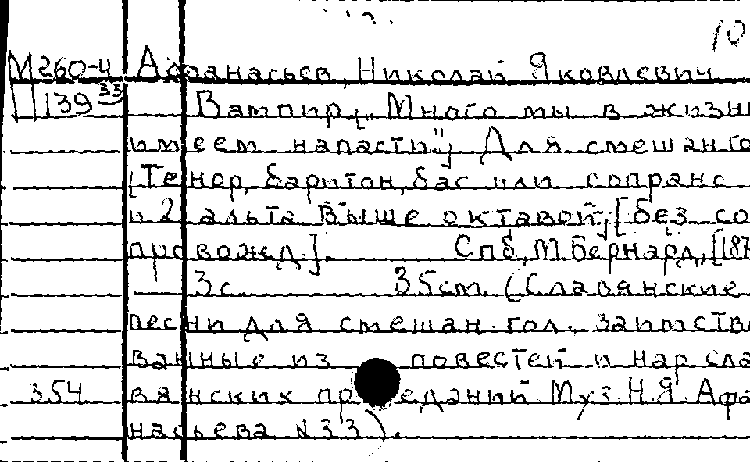 10
М260-4 Афанасьев, Николай Яковлевич
П139 33 Вампир. [„Много мы в жизни
имеем напасти"] Для смешан го
[Тенор, баритон, бас или сопрано
и 2 альта выше октавой; [без со
провожд.]. Спб, М. Бернард, [187
3с. 35см. (Славянские
песни для смешан. гол. заимство
ванные из повестей и нар сла
354 вянских преданий Муз. Н.Я Афа
насьева №33).